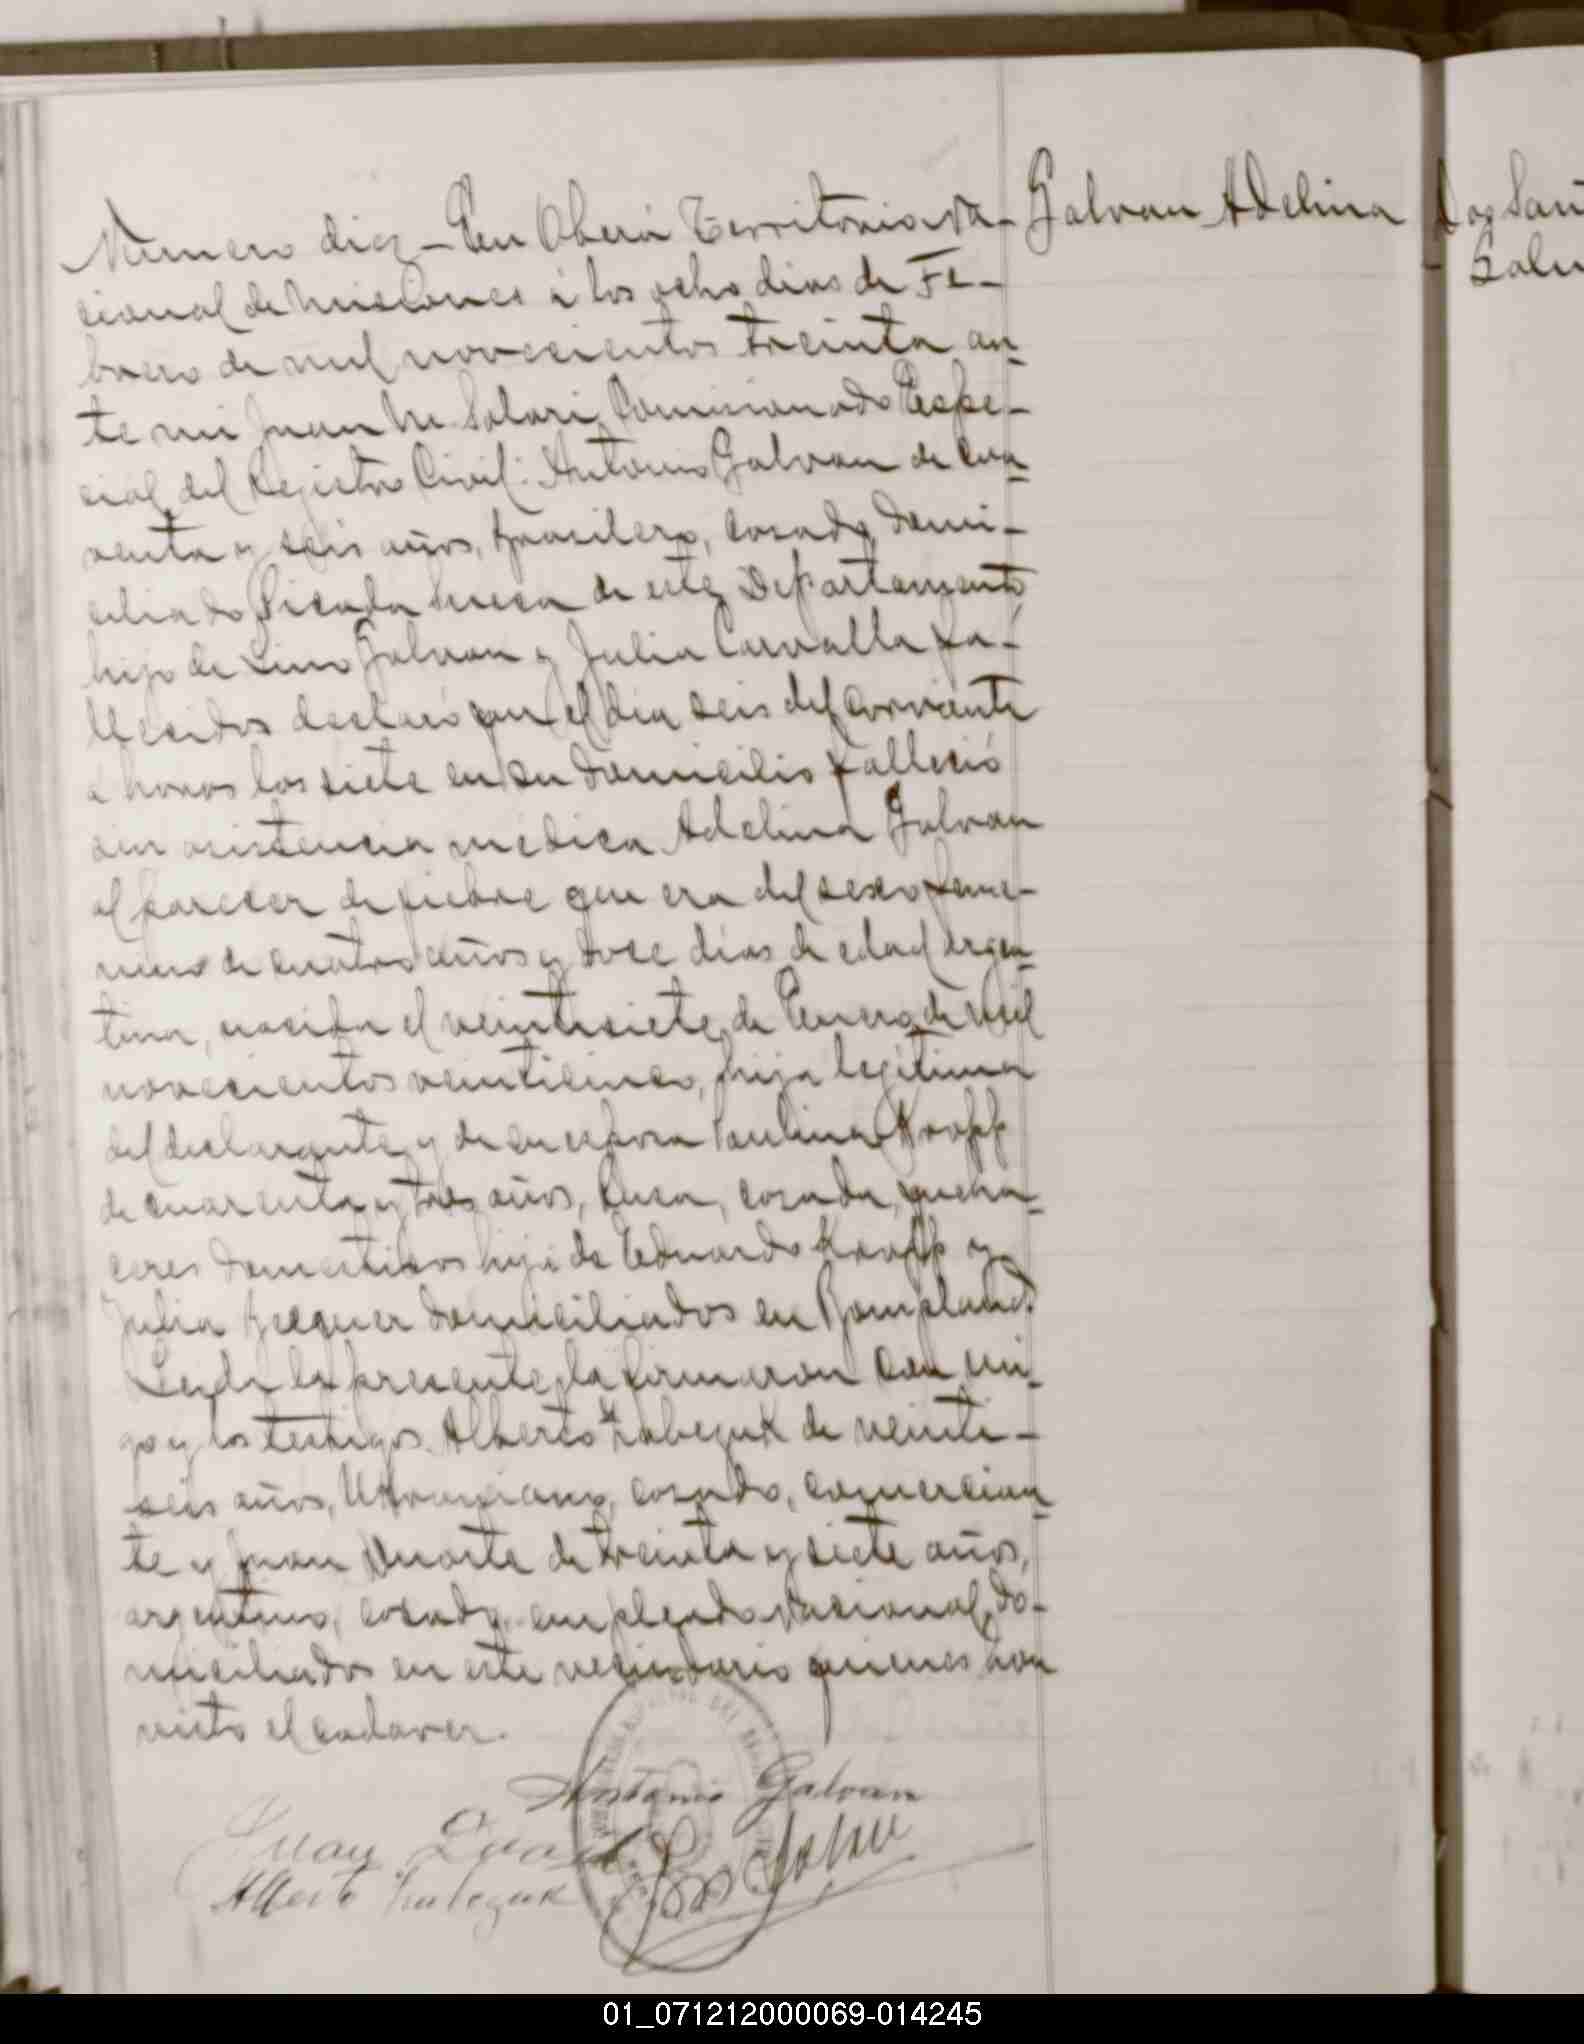 Número diez - En Oberá Territorio Na- Galvan Adelina
cional de Misiones á los ocho dias de Fe-
brero de mil novecientos treinta an-
te mi Juan M. Solari Comisionado Espe-
cial del Registro Civil: Antonio Galvan de cua-
renta y seis años, brasilero, casado, domi-
ciliado Picada Sueca de este Departamento,
hijo de Lino Galvan y Julia Carvalla fa-
llecidos declaró que el dia seis del corriente
á horas las siete en su domicilio falleció
sin asistencia médica Adelina Galvan
al parecer de fiebre que era del sexo feme-
nino de cuatro años y doce dias de edad argen-
tina, nacida el veintisiete de Enero de mil
novecientos veinticinco, hija legítima
del declarante y de su esposa Paulina Kropp
de cuarenta y tres años, Rusa, casada, queha-
ceres domesticos hija de Eduardo Kropp y
Julia domiciliados en Bompland.
Leida la presente la firmaron con mi-
go y los testigos Alberto de veinti-
seis años, Ukraniano, casado, comercian-
te y Juan Duarte de treinta y siete años,
argentino, casado, empleado Nacional, do-
miciliados en este vecindario quienes han
visto el cadaver.
Antonio Galvan
Juan Duarte
Alberto
Dos San
Galv
01_071212000069-014245